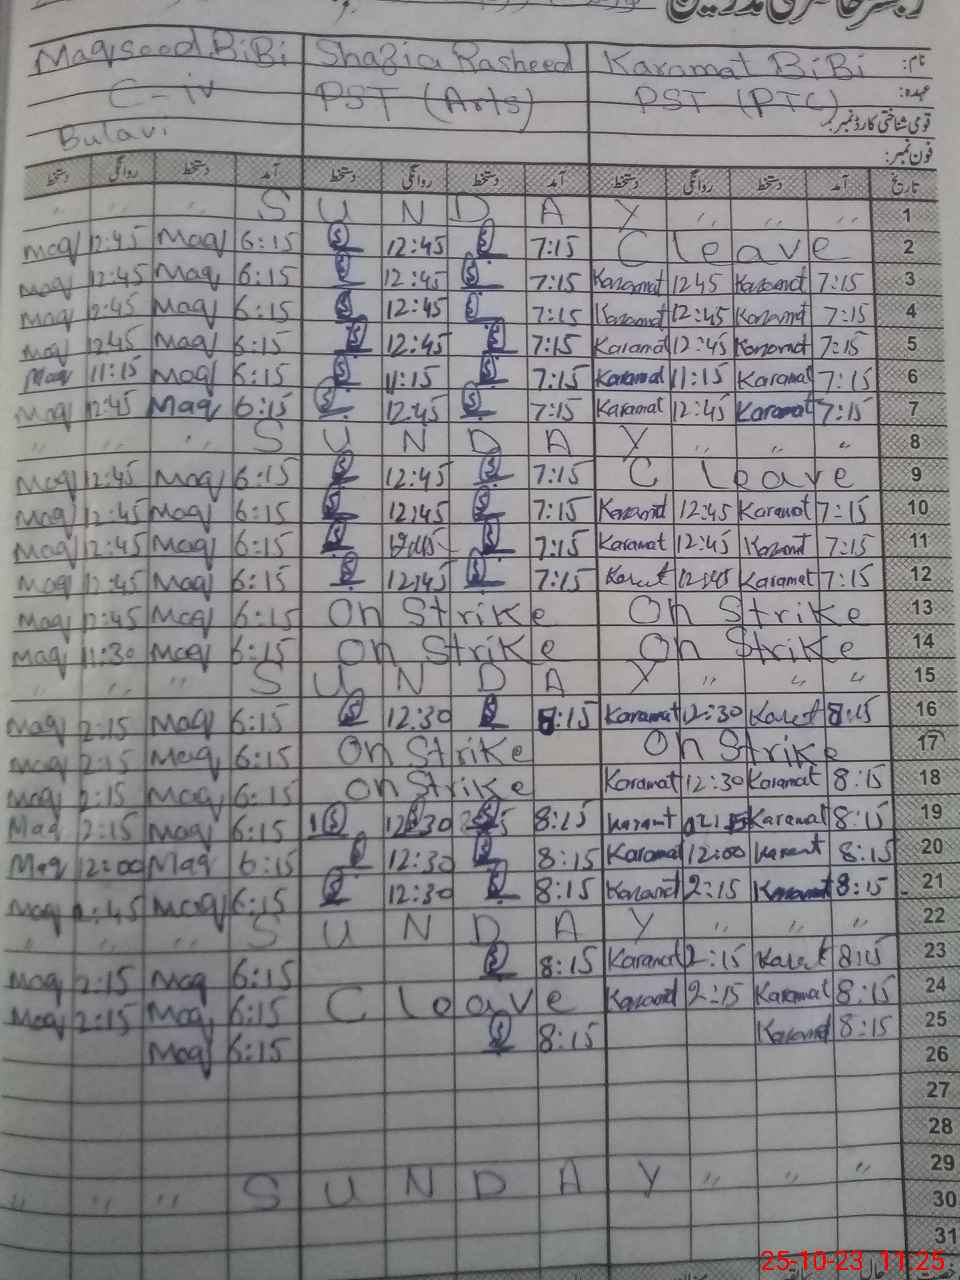 رجسٹر حاضری مدرسین
Maqsood BiBi Shazia Rasheed Karamat BiBi نام:
C-iv PST (Arts) PST (PTC) عہدہ:
Bulavi قومی شناختی کارڈ نمبر:
فون نمبر:
دستخط روانگی دستخط آمد دستخط روانگی دستخط آمد دستخط روانگی دستخط آمد تاریخ
" " " S U N D A Y " " " 1
Maq 12:45 Maq 6:15 12:45 7:15 C leave 2
Maq 12:45 Maq 6:15 12:45 7:15 Karamat 1245 Karamat 7:15 3
Maq 12:45 Maq 6:15 12:45 7:15 Karamat 12:45 Karamat 7:15 4
Maq 1245 Maq 6:15 12:45 7:15 Karamat 12:45 Karamat 7:15 5
Maq 11:15 Maq 6:15 11:15 7:15 Karamat 11:15 Karamat 7:15 6
Maq 12:45 Maq 6:15 12:45 7:15 Karamat 12:45 Karamat 7:15 7
" " " S U N D A Y " " " 8
Maq 12:45 Maq 6:15 12:45 7:15 C leave 9
Maq 12:45 Maq 6:15 12:45 7:15 Karamat 12:45 Karamat 7:15 10
Maq 12:45 Maq 6:15 12:45 7:15 Karamat 12:45 Karamat 7:15 11
Maq 12:45 Maq 6:15 12:45 7:15 12:45 Karamat 7:15 12
Maq 12:45 Maq 6:15 On Strike On Strike 13
Maq 11:30 Maq 6:15 On Strike On Strike 14
" " " S U N D A Y " " " 15
Maq 2:15 Maq 6:15 12:30 8:15 Karamat 12:30 8:15 16
Maq 2:15 Maq 6:15 On Strike On Strike 17
Maq 2:15 Maq 6:15 On Strike Karamat 12:30 Karamat 8:15 18
Maq 2:15 Maq 6:15 12:30 8:15 Karamat Karamat 8:15 19
Maq 12:00 Maq 6:15 12:30 8:15 Karamat 12:00 8:15 20
Maq Maq 6:15 12:30 8:15 Karamat 2:15 Karamat 8:15 21
" " " S U N D A Y " " " 22
Maq 2:15 Maq 6:15 8:15 Karamat 2:15 8:15 23
Maq 2:15 Maq 6:15 C leave Karamat 2:15 Karamat 8:15 24
Maq 6:15 8:15 Karamat 8:15 25
26
27
28
" " " S U N D A Y " " " 29
30
31
25-10-23 11:25